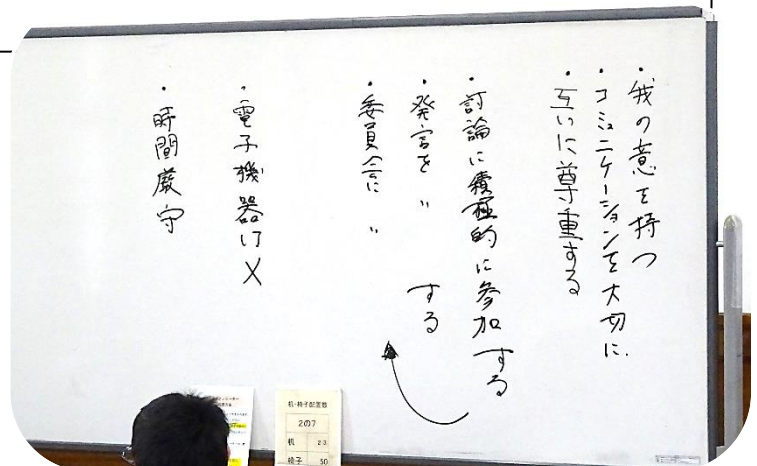 ・我の意を持つ
・コミュニケーションを大切に.
・互いに尊重する
・討論に積極的に参加する
・発言を 〃 する
・委員会に 〃
・電子機器は×
・時間厳守
机・椅子配置数
2の7
机 23
椅子 50